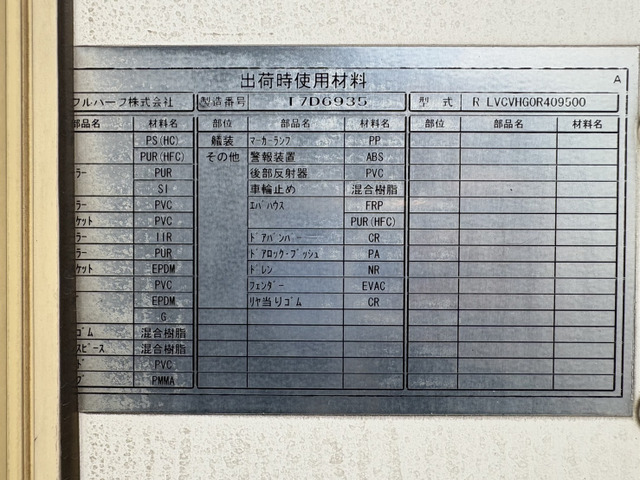 出荷時使用材料 A
フルハーフ株式会社 製造番号 T7D6935 型 式 R LVCVHG0R409500
部品名 材料名 部位 部品名 材料名 部位 部品名 材料名
PS(HC) 艤装 マーカーランプ PP
PUR(HFC) その他 警報装置 ABS
ラー PUR 後部反射器 PVC
SI 車輪止め 混合樹脂
ラー PVC エバハウス FRP
ケット PVC PUR(HFC)
ラー IIR ドアバンパー CR
ラー PUR ドアロック・ブッシュ PA
ケット EPDM ドレン NR
PVC フェンダー EVAC
EPDM リヤ当りゴム CR
G
ゴム 混合樹脂
スピース 混合樹脂
ド PVC
プ PMMA